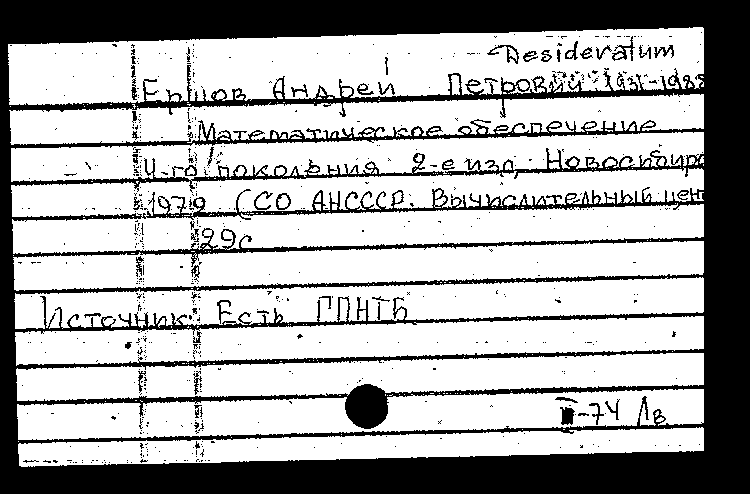 Desideratum
Ершов Андрей Петрович 1931-1988
Математическое обеспечение
4-го поколения 2-е изд, Новосибирс
1979 (СО АНСССР. Вычислительный цен
29с
Источник: Есть ГПНТБ
-74 Лв